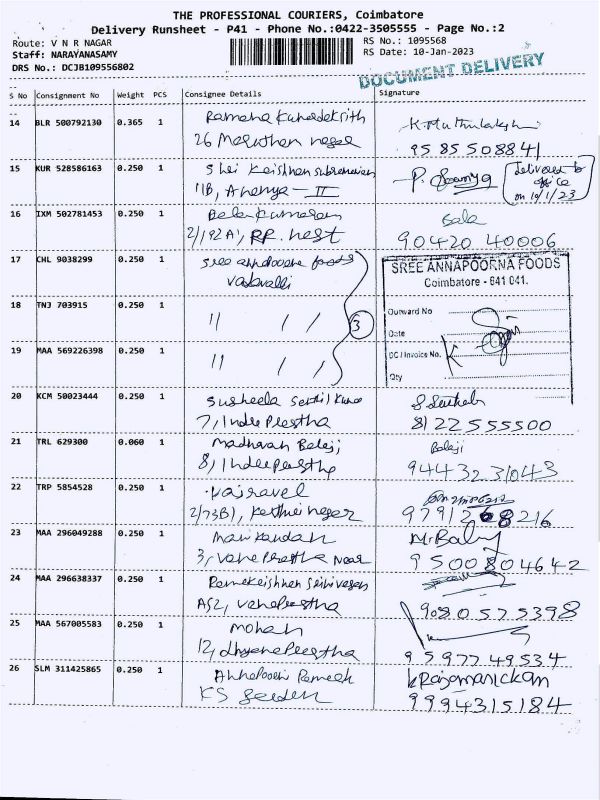 THE PROFESSIONAL COURIERS, Coimbatore
Delivery Runsheet - P41 - Phone No.:0422-3505555 - Page No.:2
Route: V N R NAGAR
RS No.: 1095568
Staff: NARAYANASAMY
RS Date: 10-Jan-2023
DRS No.: DCJB109556802
DOCUMENT DELIVERY
S No Consignment No Weight PCS Consignee Details Signature
14 BLR 500792130 0.365 1
26 nagar
95 85 508841
15 KUR 528586163 0.250 1
11B, Ananya - II
P. Sowmya
Delivered to
office
on 10/1/23
16 IXM 502781453 0.250 1 Balakumaran
Bala
2/192A, RR. nest
90420 40006
17 CHL 9038299 0.250 1 Sree annapoorna foods
Vadavalli
SREE ANNAPOORNA FOODS
Coimbatore - 641 041.
Outward No
Date
DC / Invoice No.
Qty
18 TNJ 703915 0.250 1 11 / /
3
19 MAA 569226398 0.250 1 11 / /
20 KCM 50023444 0.250 1 Susheela Senthil Kumar
7, Indraprastha
81 22 555500
21 TRL 629300 0.060 1 Madhavan Balaji
Balaji
8, Indraprastha
94432 31043
22 TRP 5854528 0.250 1 Vairavel
2/73B1, nagar
97912 68216
23 MAA 296049288 0.250 1 Manikandan
M. Balu
3, Vanaprastha Near
9500804642
24 MAA 296638337 0.250 1 Ramakrishnan Srinivasan
A52, Vanaprastha
9080575398
25 MAA 567005583 0.250 1 Mohan
12, dhyanaprastha
95977 49534
26 SLM 311425865 0.250 1 Ramesh
K Rajamanickam
KS Garden
9994315184